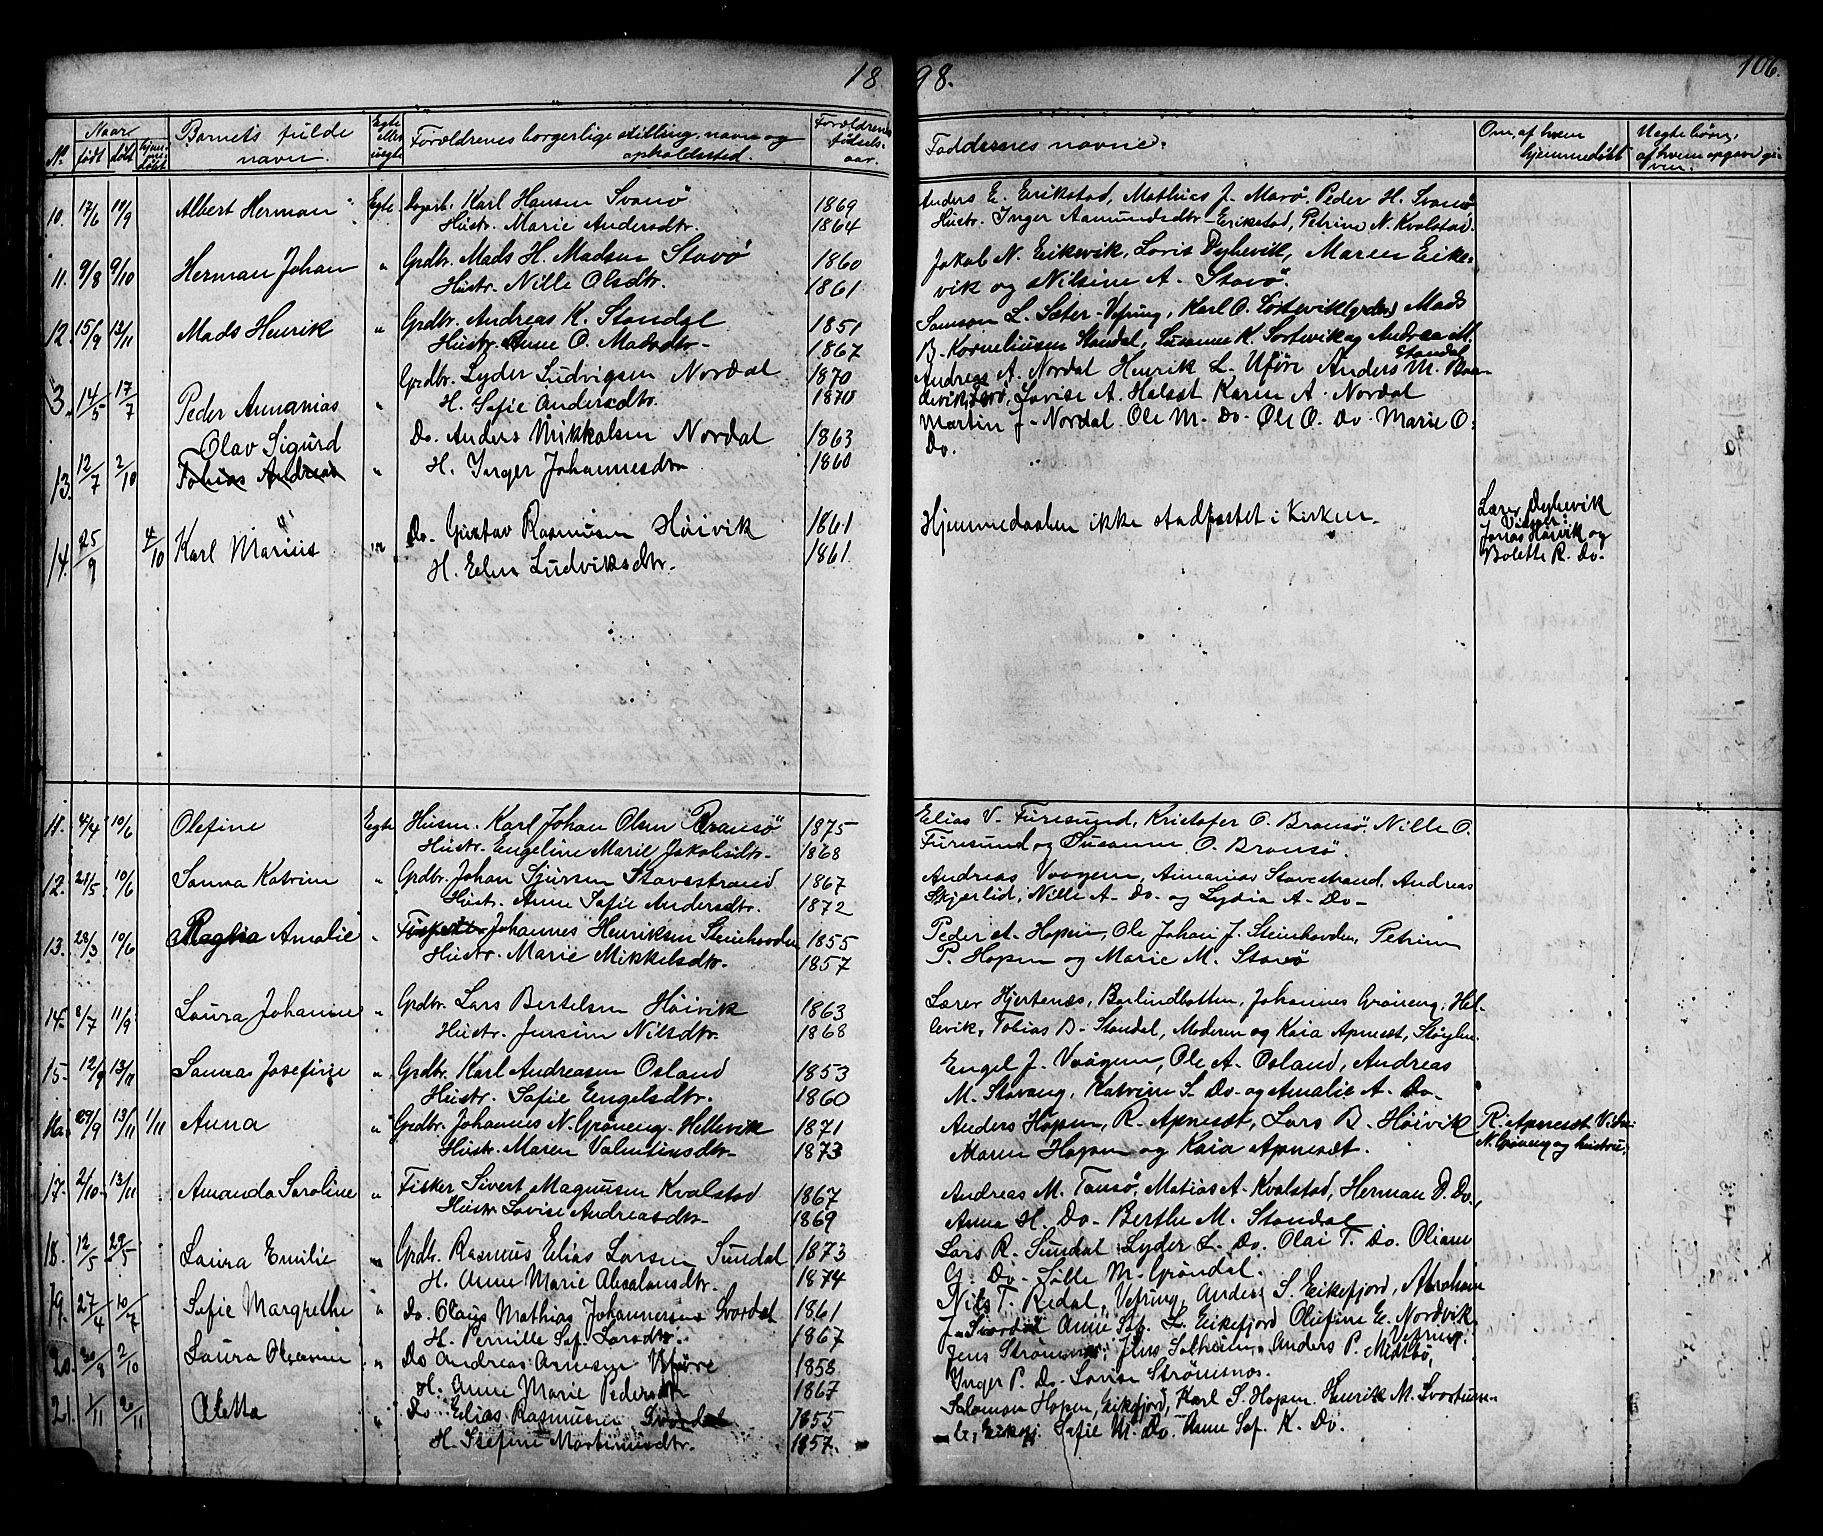 18
98.
106.
No.
Naar
født
døbt
hjemmedøbt
Barnets fulde navn.
Egte eller uegte
Forældrenes borgerlige stilling, navn og opholdssted.
Forældrenes fødselsaar.
Faddernes navne.
Om, af hvem hjemmedøbt
Uegte børn, af hvem opgave given.
10. 17/6 10/9 Albert Herman Egte Dagarb. Karl Hansen Svanø 1869
Hustr. Marie Andersdtr. 1864
Anders E. Erikstad, Mathias J. Marø, Peder H. Svanø
Hustr. Inger Aamundsdtr. Erikstad, Petrine N. Kvalstad.
11. 9/8 9/10 Herman Johan " Grdbr. Mads H. Madsen Stavø 1860
Hustr. Nille Olsdtr. 1861
Jakob N. Eikevik, Loris Dyhevik, Maren Eike-
vik og Nilsine A. Stavø.
12. 15/9 13/11 Mads Henrik " Grdbr. Andreas K. Standal 1851
Hustr. Anne O. Madsdtr. 1867
Samson L. Sæter-Vefring, Karl O. Sortevik Mads
B. Korneliusen Standal, Susanne K. Sortevik og Andrea M.
Standal
3. 14/5 17/7 Peder Annanias " Grdbr. Lyder Ludvigsen Nordal 1870
H. Sofie Andersdtr. 1870
Andreas A. Nordal Henrik L. Uføre Anders M.
Lovise A. Helset Karen A. Nordal
13. 12/7 2/10 Olav Sigurd
Tobias Andreas " Do. Anders Mikkalsen Nordal 1863
H. Inger Johannesdtr. 1860
Martin J. Nordal Ole M. Do. Ole O. Do. Marie O.
Do.
14. 25/9 4/10 Karl Marius " Do. Gustav Rasmusen Høivik 1861
H. Elen Ludviksdtr. 1861.
Hjemmedaaben ikke stadfæstet i Kirken.
Lærer Dyhevik
Vidner:
Jonas Høivik og
Bolette R. Do.
11. 4/4 10/6 Olefine Egte Husm. Karl Johan Olsen Bransø 1875
Hustr. Engeline Marie Jakobsdtr. 1868
Elias V. Furesund, Kristofer O. Bransø, Nille O.
Furesund og Susanne O. Bransø.
12. 21/5 10/6 Sanna Katrine " Grdbr. Johan Sjursen Stavestrand 1867
Hustr. Anne Sofie Andersdtr. 1872
Andreas Vaagen, Annanias Stavestrand, Andreas
Skjærlid, Nille A. Do. og Lydia A. Do.
13. 28/3 10/6 Magna Amalie " Johannes Henriksen Steinhovden 1855
Hustr. Marie Mikkelsdtr. 1857
Peder A. Hopen, Ole Johan J. Steinhovden, Petrine
P. Hopen og Marie M. Stavø
14. 8/7 11/9 Laura Johanne " Grdbr. Lars Bertelsen Høivik 1863
Hustr. Jensine Nilsdtr. 1868
Lærer Hjertenæs, Barlindbotten, Johannes Grøneng, Hel-
levik, Tobias B. Standal, Moderen og Kaia Apnesæt,
15. 12/9 13/11 Sanna Josefine " Grdbr. Karl Andreasen Osland 1853
Hustr. Sofie Engelsdtr. 1860
Engel J. Vaagen, Ole A. Osland, Andreas
M. Stavang, Katrine S. Do. og Amalie A. Do.
16. 29/9 13/11 1/11 Anna " Grdbr. Johannes N. Grøneng, Hellevik 1871
Hustr. Maren Valentinsdtr. 1873
Anders Hopen, R. Apnesæt, Lars B. Høivik
Maren Hopen og Kaia Apnesæt.
R. Apnesæt
N. Grøneng og hustru.
17. 2/10 13/11 Amanda Saroline " Fisker Sivert Magnusen Kvalstad 1867
Hustr. Lovise Andreasdtr. 1869
Andreas M. Tansø, Matias A. Kvalstad, Herman D. Do,
Anna H. Do. Berthe M. Standal
18. 12/5 29/5 Laura Emilie " Grdb. Rasmus Elias Larsen Sundal 1873
H. Anne Marie Absalonsdtr. 1874
Lars R. Sundal, Lyder L. Do. Olai T. Do. Oliane
G. Do. Sølle M. Grøndal.
19. 27/4 10/7 Sofie Margrethe " Do. Olaus Mathias Johannesen Svardal 1861
H. Pernille Sof. Larsdtr. 1867
Nils T. Redal, Vefring, Anders S. Eikefjord, Abraham
J. Svardal Anne Sof. L. Eikefjord Olufine E. Nordvik
Vefring.
20. 30/8 2/10 Laura " Do Andreas Arnesen Uføre 1858
H. Anne Marie Pedersdtr. 1867
Jens Strømsnæs, Jens Solheim, Anders P. Midtbø,
Inger P. Do. Lovise Strømsnæs.
21. 1/11 Aletta " Do Elias Rasmusen Svardal 1855
H. Stefine Martinusdtr. 1857.
Salomon Hopen, Eikefjord, Karl S. Hopen. Henrik M.
Eikefj. Sofie M. Do. Anne Sof. K. Do.